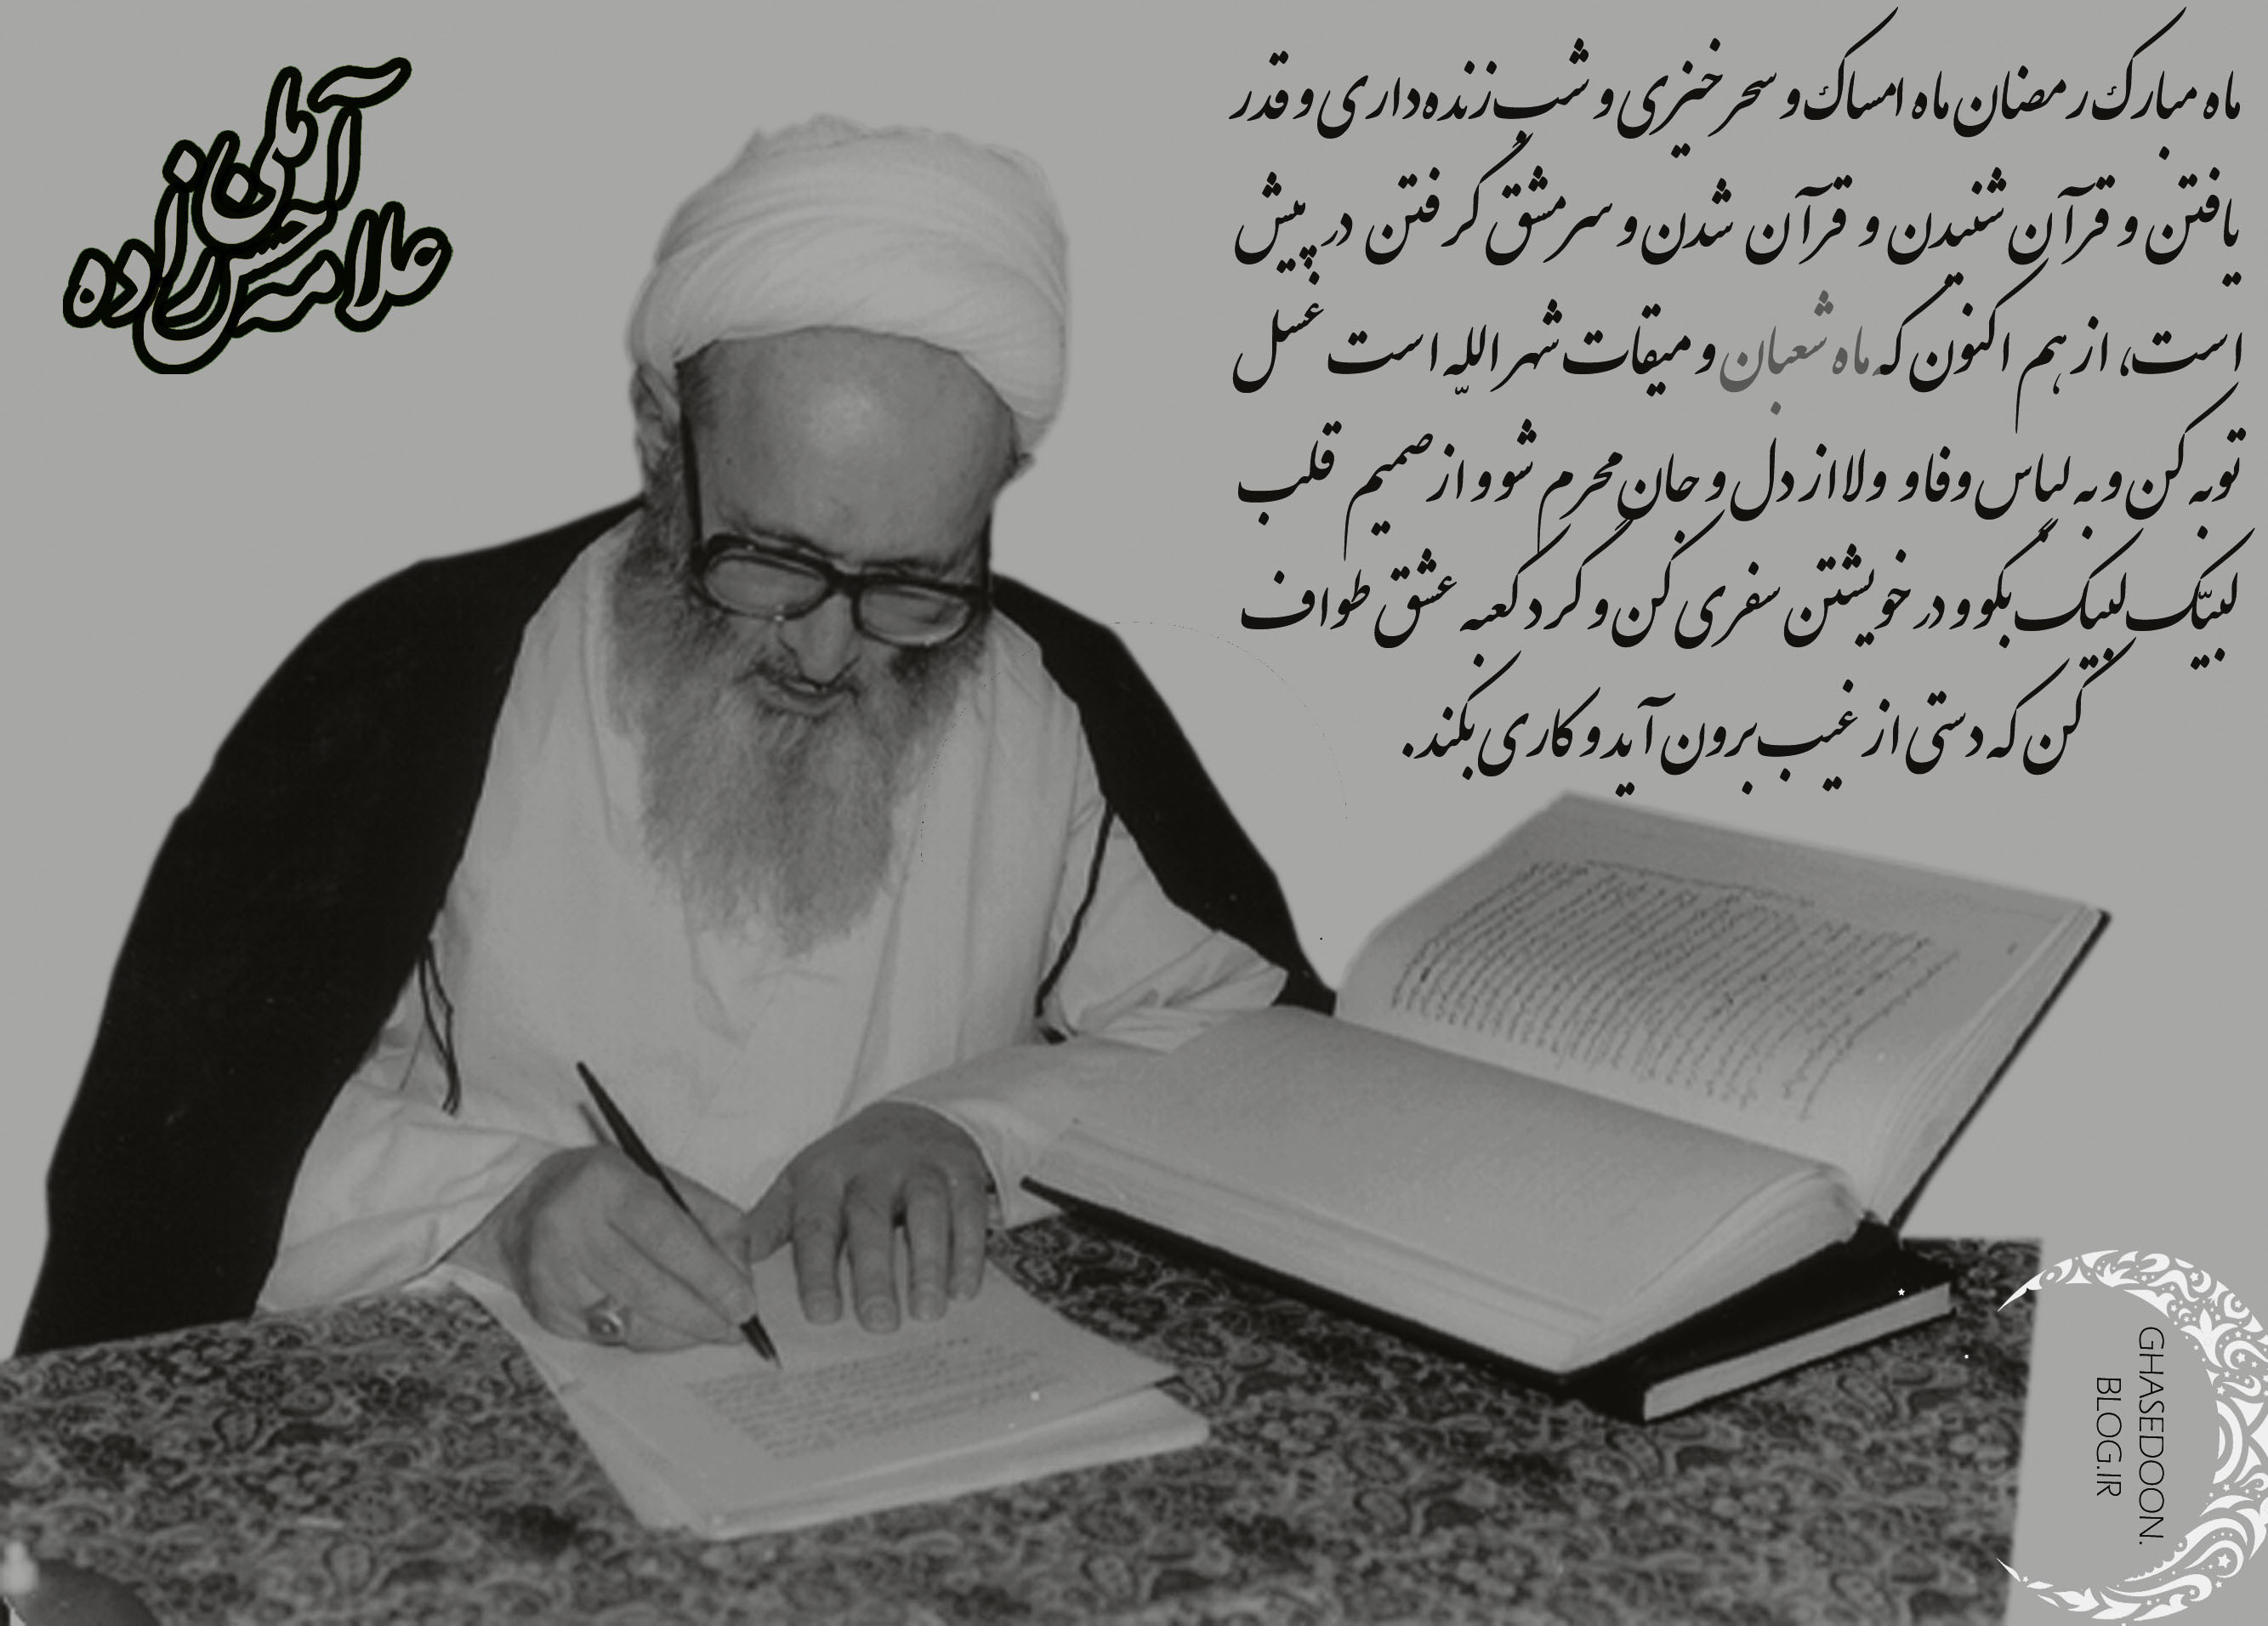 ماه مبارک رمضان ماه امساک و سحر خیزی و شب زنده‌داری و قدر
یافتن و قرآن شنیدن و قرآن شدن و سرمشق گرفتن در پیش
است، از هم اکنون که ماه شعبان و میقات شهر اللّه است غسل
توبه کن و به لباس وفا و ولا از دل و جان محرم شو و از صمیم قلب
لبیّک لبیک بگو و در خویشتن سفری کن و گرد کعبه عشق طواف
کن که دستی از غیب برون آید و کاری بکند.
علامه حسن زاده
آملی
GHASEDOON.
BLOG.IR